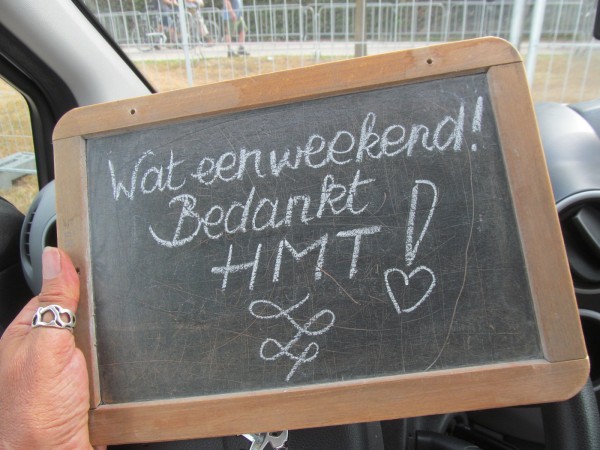 Wat een weekend!
Bedankt
HMT!